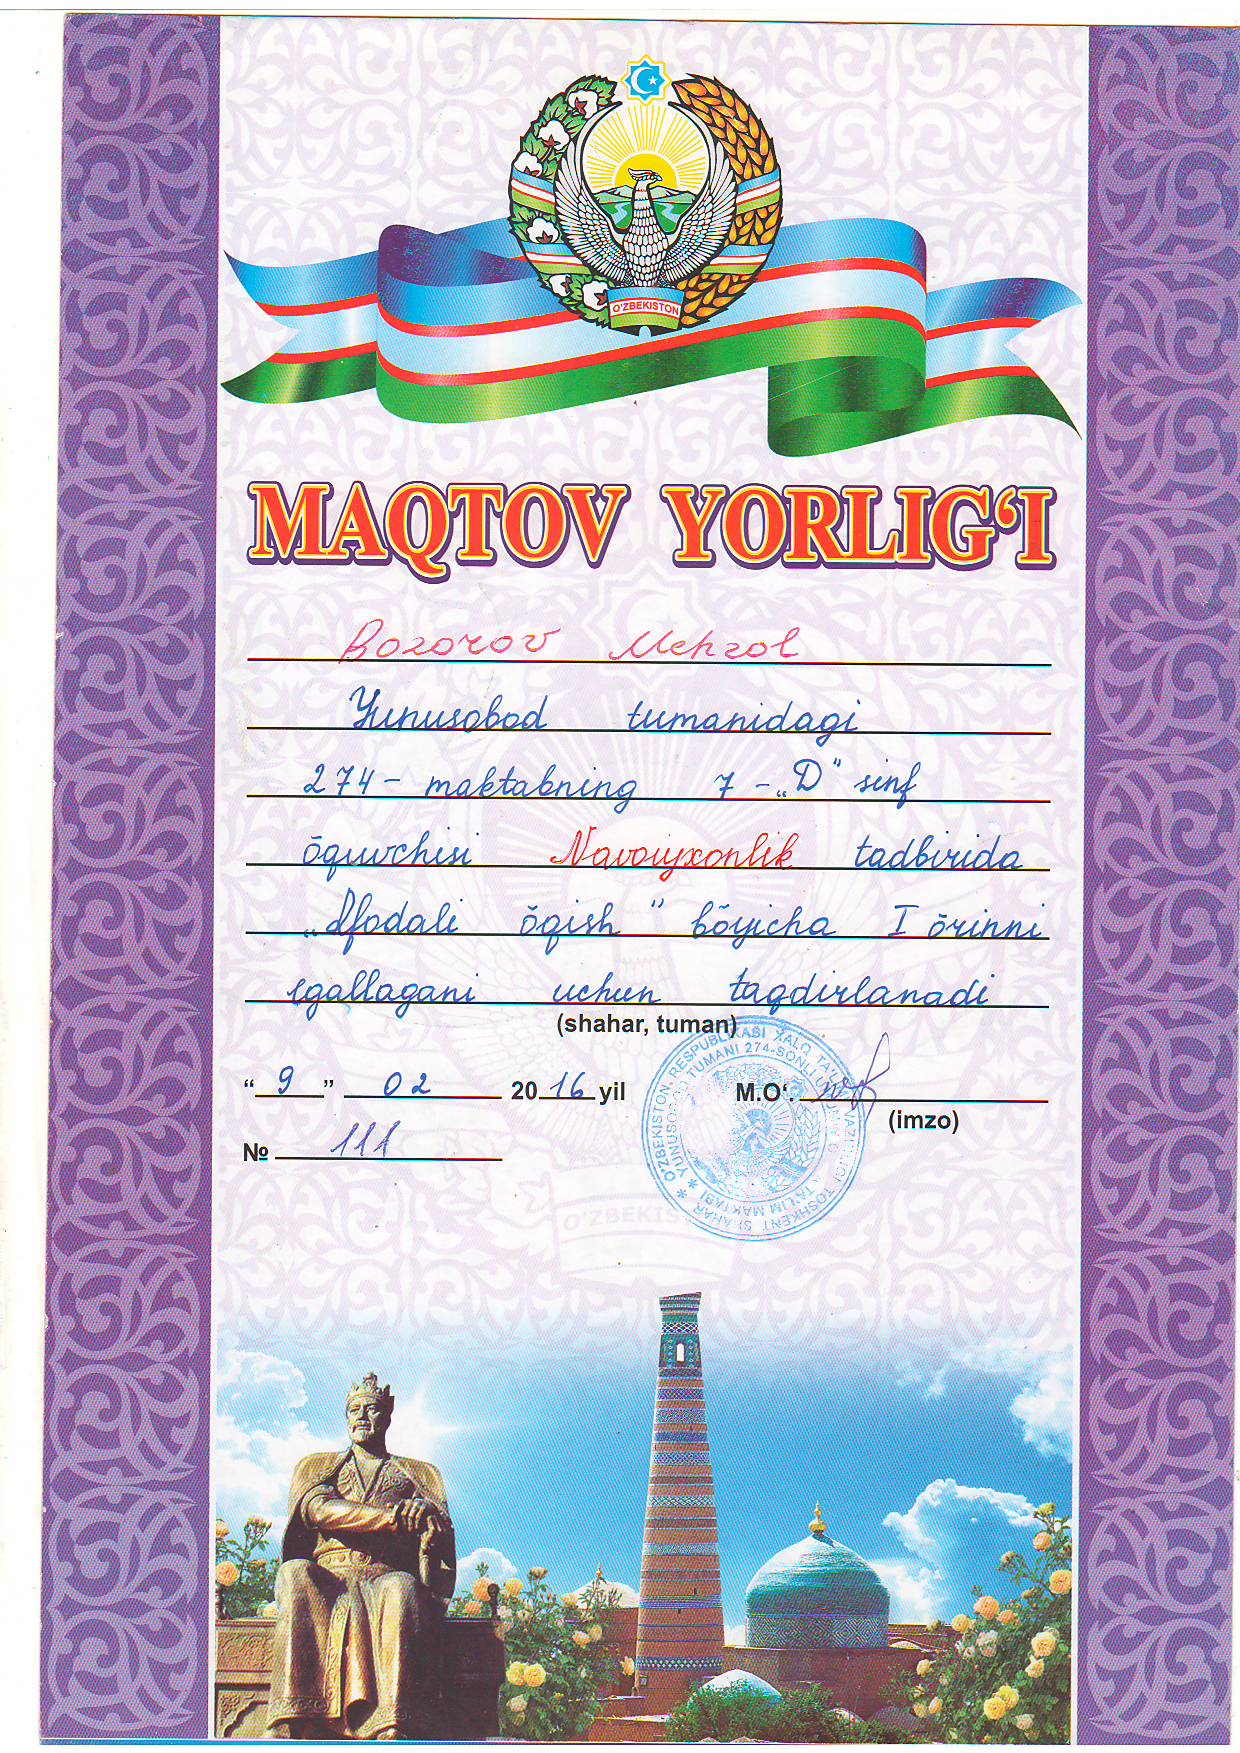 O'ZBEKISTON
MAQTOV YORLIG‘I
Bozorov Mehrol
Yunusobod tumanidagi
274 - maktabning 7 - „D" sinf
õquvchisi Navoiyxonlik tadbirida
„Ifodali õqish" bõyicha I õrinni
egallagani uchun taqdirlanadi
(shahar, tuman)
“ 9 ” 02 2016 yil M.O‘.
(imzo)
№ 111
O'ZBEKISTON RESPUBLIKASI XALQ TA'LIMI VAZIRLIGI TOSHKENT SHAHAR
YUNUSOBOD TUMANI 274-SONLI UMUMIY O'RTA TA'LIM MAKTABI